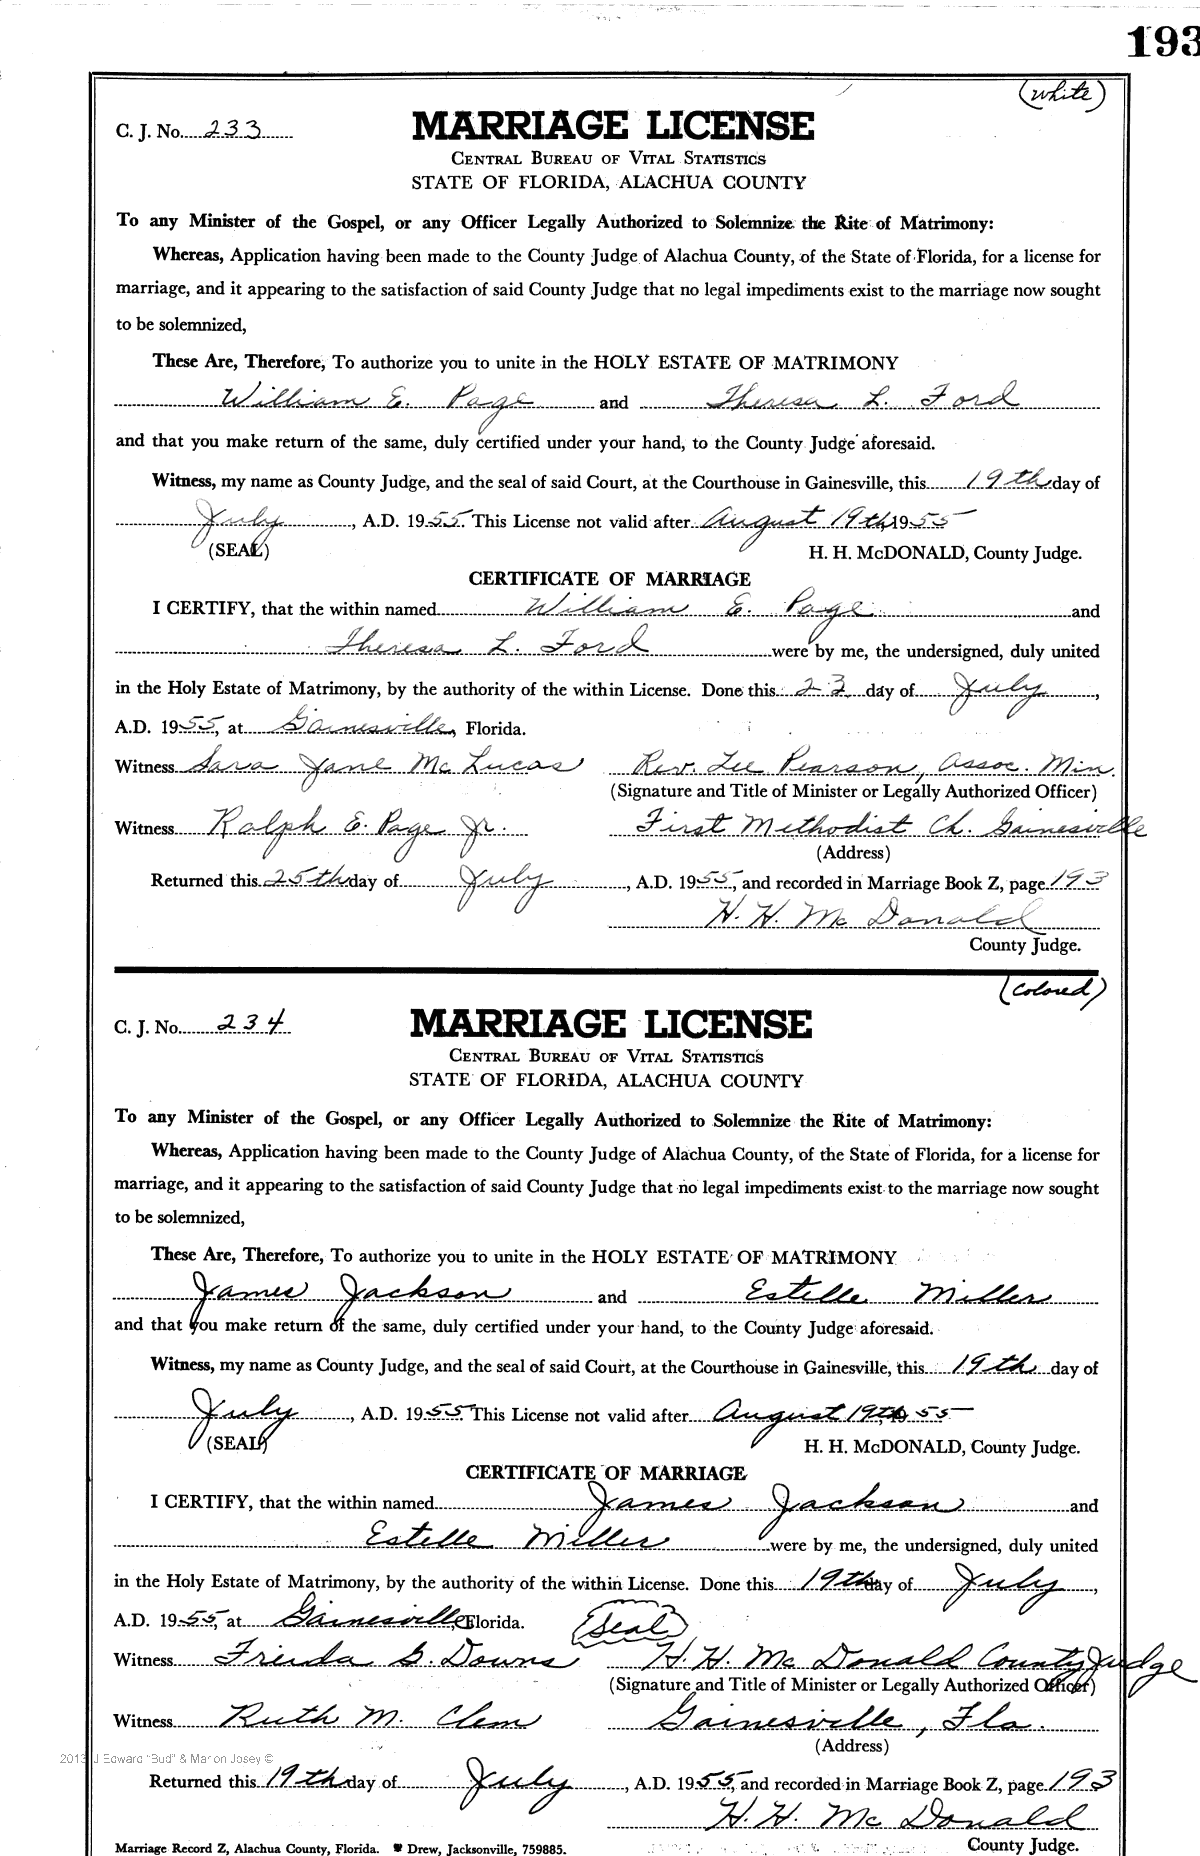 193
(white)
C. J. No. 233
MARRIAGE LICENSE
CENTRAL BUREAU OF VITAL STATISTICS
STATE OF FLORIDA, ALACHUA COUNTY
To any Minister of the Gospel, or any Officer Legally Authorized to Solemnize the Rite of Matrimony:
Whereas, Application having been made to the County Judge of Alachua County, of the State of Florida, for a license for
marriage, and it appearing to the satisfaction of said County Judge that no legal impediments exist to the marriage now sought
to be solemnized,
These Are, Therefore, To authorize you to unite in the HOLY ESTATE OF MATRIMONY
William E. Page and Theresa L. Ford
and that you make return of the same, duly certified under your hand, to the County Judge aforesaid.
Witness, my name as County Judge, and the seal of said Court, at the Courthouse in Gainesville, this 19th day of
July, A.D. 1955. This License not valid after August 19th, 1955
(SEAL) H. H. McDONALD, County Judge.
CERTIFICATE OF MARRIAGE
I CERTIFY, that the within named William E. Page and
Theresa L. Ford were by me, the undersigned, duly united
in the Holy Estate of Matrimony, by the authority of the within License. Done this 23 day of July,
A.D. 1955, at Gainesville, Florida.
Witness Sara Jane McLucas Rev. Lee Pearson, Assoc. Min.
(Signature and Title of Minister or Legally Authorized Officer)
Witness Ralph E. Page Jr. First Methodist Ch. Gainesville
(Address)
Returned this 25th day of July, A.D. 1955, and recorded in Marriage Book Z, page 193
H. H. McDonald
County Judge.
(Colored)
C. J. No. 234
MARRIAGE LICENSE
CENTRAL BUREAU OF VITAL STATISTICS
STATE OF FLORIDA, ALACHUA COUNTY
To any Minister of the Gospel, or any Officer Legally Authorized to Solemnize the Rite of Matrimony:
Whereas, Application having been made to the County Judge of Alachua County, of the State of Florida, for a license for
marriage, and it appearing to the satisfaction of said County Judge that no legal impediments exist to the marriage now sought
to be solemnized,
These Are, Therefore, To authorize you to unite in the HOLY ESTATE OF MATRIMONY
James Jackson and Estelle Miller
and that you make return of the same, duly certified under your hand, to the County Judge aforesaid.
Witness, my name as County Judge, and the seal of said Court, at the Courthouse in Gainesville, this 19th day of
July, A.D. 1955. This License not valid after August 19th, 1955
(SEAL) H. H. McDONALD, County Judge.
CERTIFICATE OF MARRIAGE
I CERTIFY, that the within named James Jackson and
Estelle Miller were by me, the undersigned, duly united
in the Holy Estate of Matrimony, by the authority of the within License. Done this 19th day of July,
A.D. 1955, at Gainesville, Florida. (Seal)
Witness Freida G. Downs H. H. McDonald County Judge
(Signature and Title of Minister or Legally Authorized Officer)
Witness Ruth M. Clem Gainesville, Fla.
(Address)
2013 J Edward "Bud" & Marion Josey ©
Returned this 19th day of July, A.D. 1955, and recorded in Marriage Book Z, page 193
H. H. McDonald
County Judge.
Marriage Record Z, Alachua County, Florida. Drew, Jacksonville, 759885.